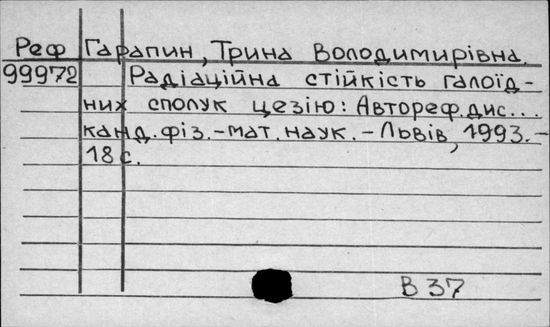 Реф Гарапин, Трина Володимирівна.
99972 Радіаційна стійкість галоїд-
них сполук цезію: Автореф.дис...
канд.фіз.-мат.наук.-Львів, 1993.-
18с.
В 37